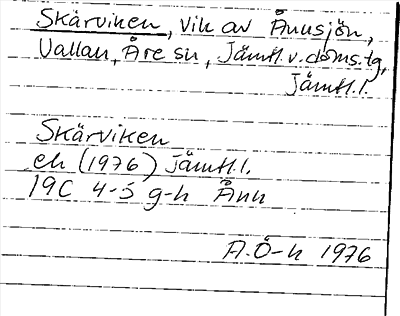 Skärviken, vik av Ånnsjön,
Vallan, Åre sn, Jämtl.v.doms.tg,
Jämtl.l.
Skärviken
ek (1976) Jämtl.l.
19C 4-5 g-h Ånn
A.Ö-k 1976